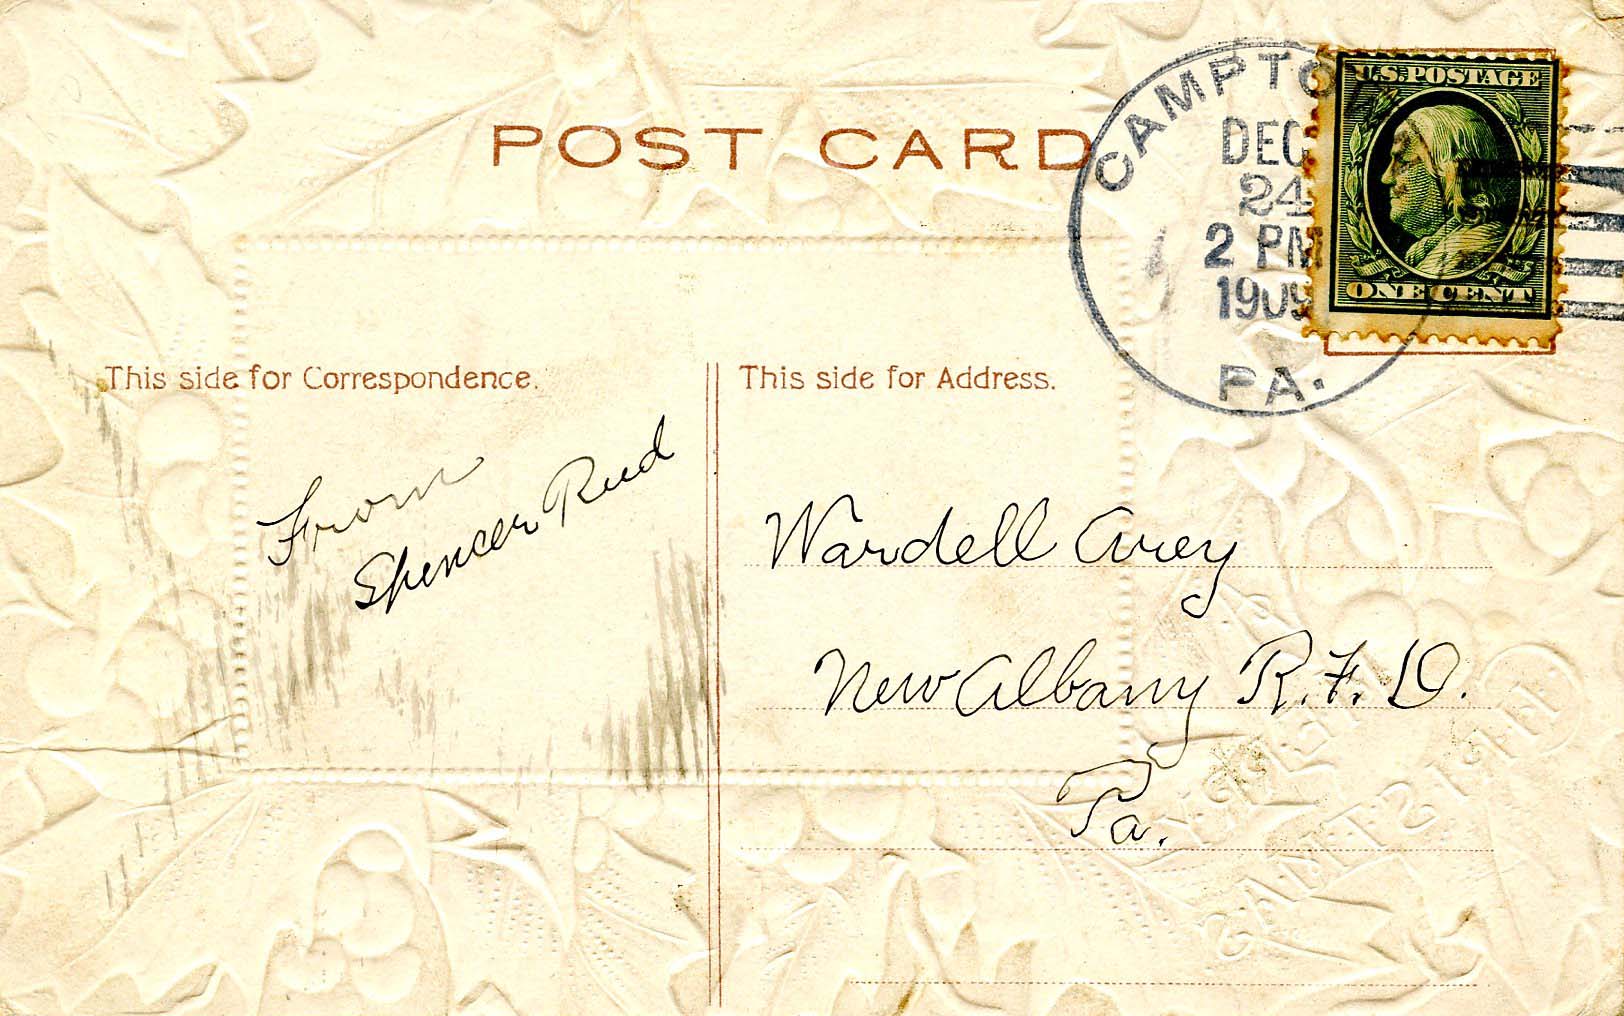 POST CARD
CAMPTO
DEC
24
2 PM
1909
PA.
U.S. POSTAGE
ONE CENT
This side for Correspondence.
This side for Address.
From
Spencer Reed
Wardell Avey
New Albany R.F.D.
Pa.